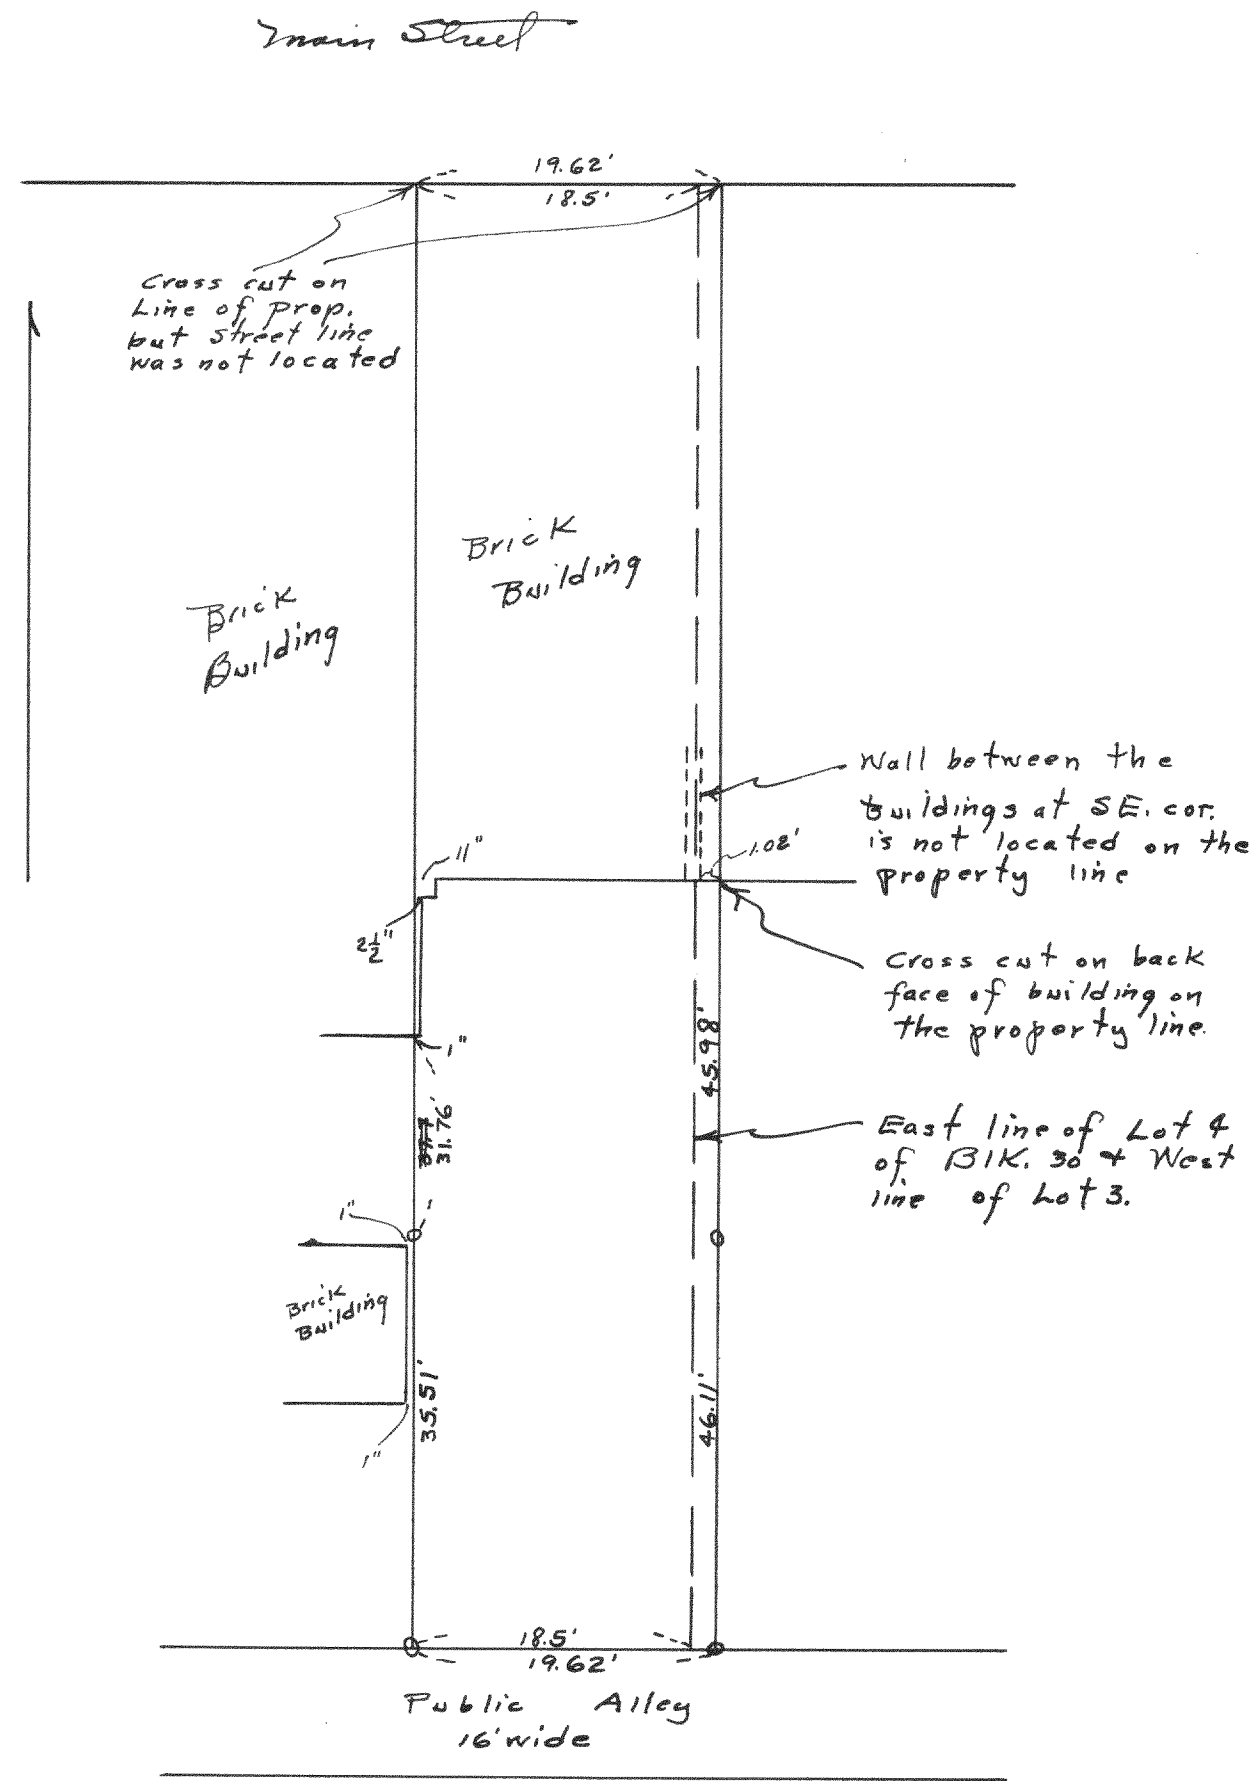 Main Street
19.62'
18.5'
Cross cut on
Line of Prop.
but street line
was not located
Brick
Building
Brick
Building
Wall between the
buildings at SE. cor.
is not located on the
property line
11"
1.02'
2½"
Cross cut on back
face of building on
the property line.
1"
45.98'
31.76'
East line of Lot 4
of Blk. 30 & West
line of Lot 3.
1"
Brick
Building
35.51'
46.11'
1"
18.5'
19.62'
Public Alley
16' wide